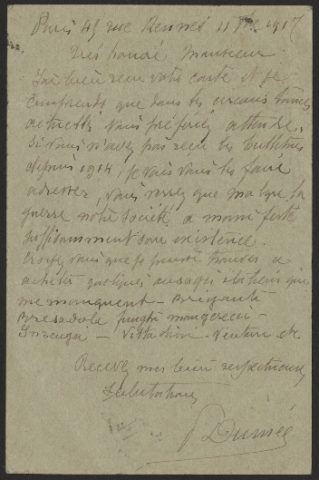 Paris 45 rue Rennes 11 1917
Très honoré Monsieur
J'ai bien reçu votre carte et je
comprends que dans les circonstances
actuelles vous préfériez attendre.
Si vous n'avez pas reçu les bulletins
depuis 1914, je vais vous les faire
adresser, vous verrez que malgré la
guerre notre Société a manifesté
suffisamment son existence.
Croyez vous que je pourrai trouver à
acheter quelques ouvrages italiens qui
me manquent - Briganti
Bresadola funghi mangerecci -
Inzenga - Vittadini - Venturi etc
Recevez mes bien respectueuses
Salutations
Dumée